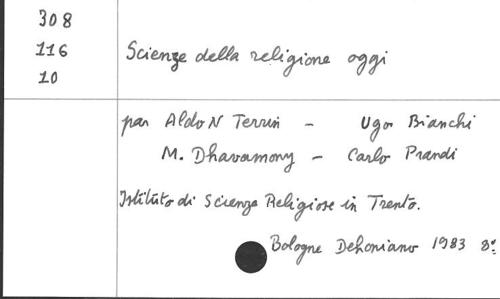 308
116
10
Scienze della religione oggi
par Aldo N Terrin - Ugo Bianchi
M. Dhavamony - Carlo Prandi
Istituto di Scienze Religiose in Trento.
Bologne Dehoniano 1983 8º